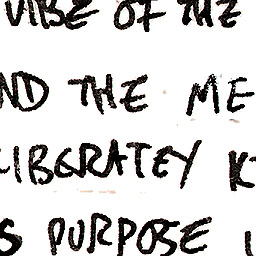 VIBE OF THE
ND THE ME
LIBERATEY K
S PURPOSE